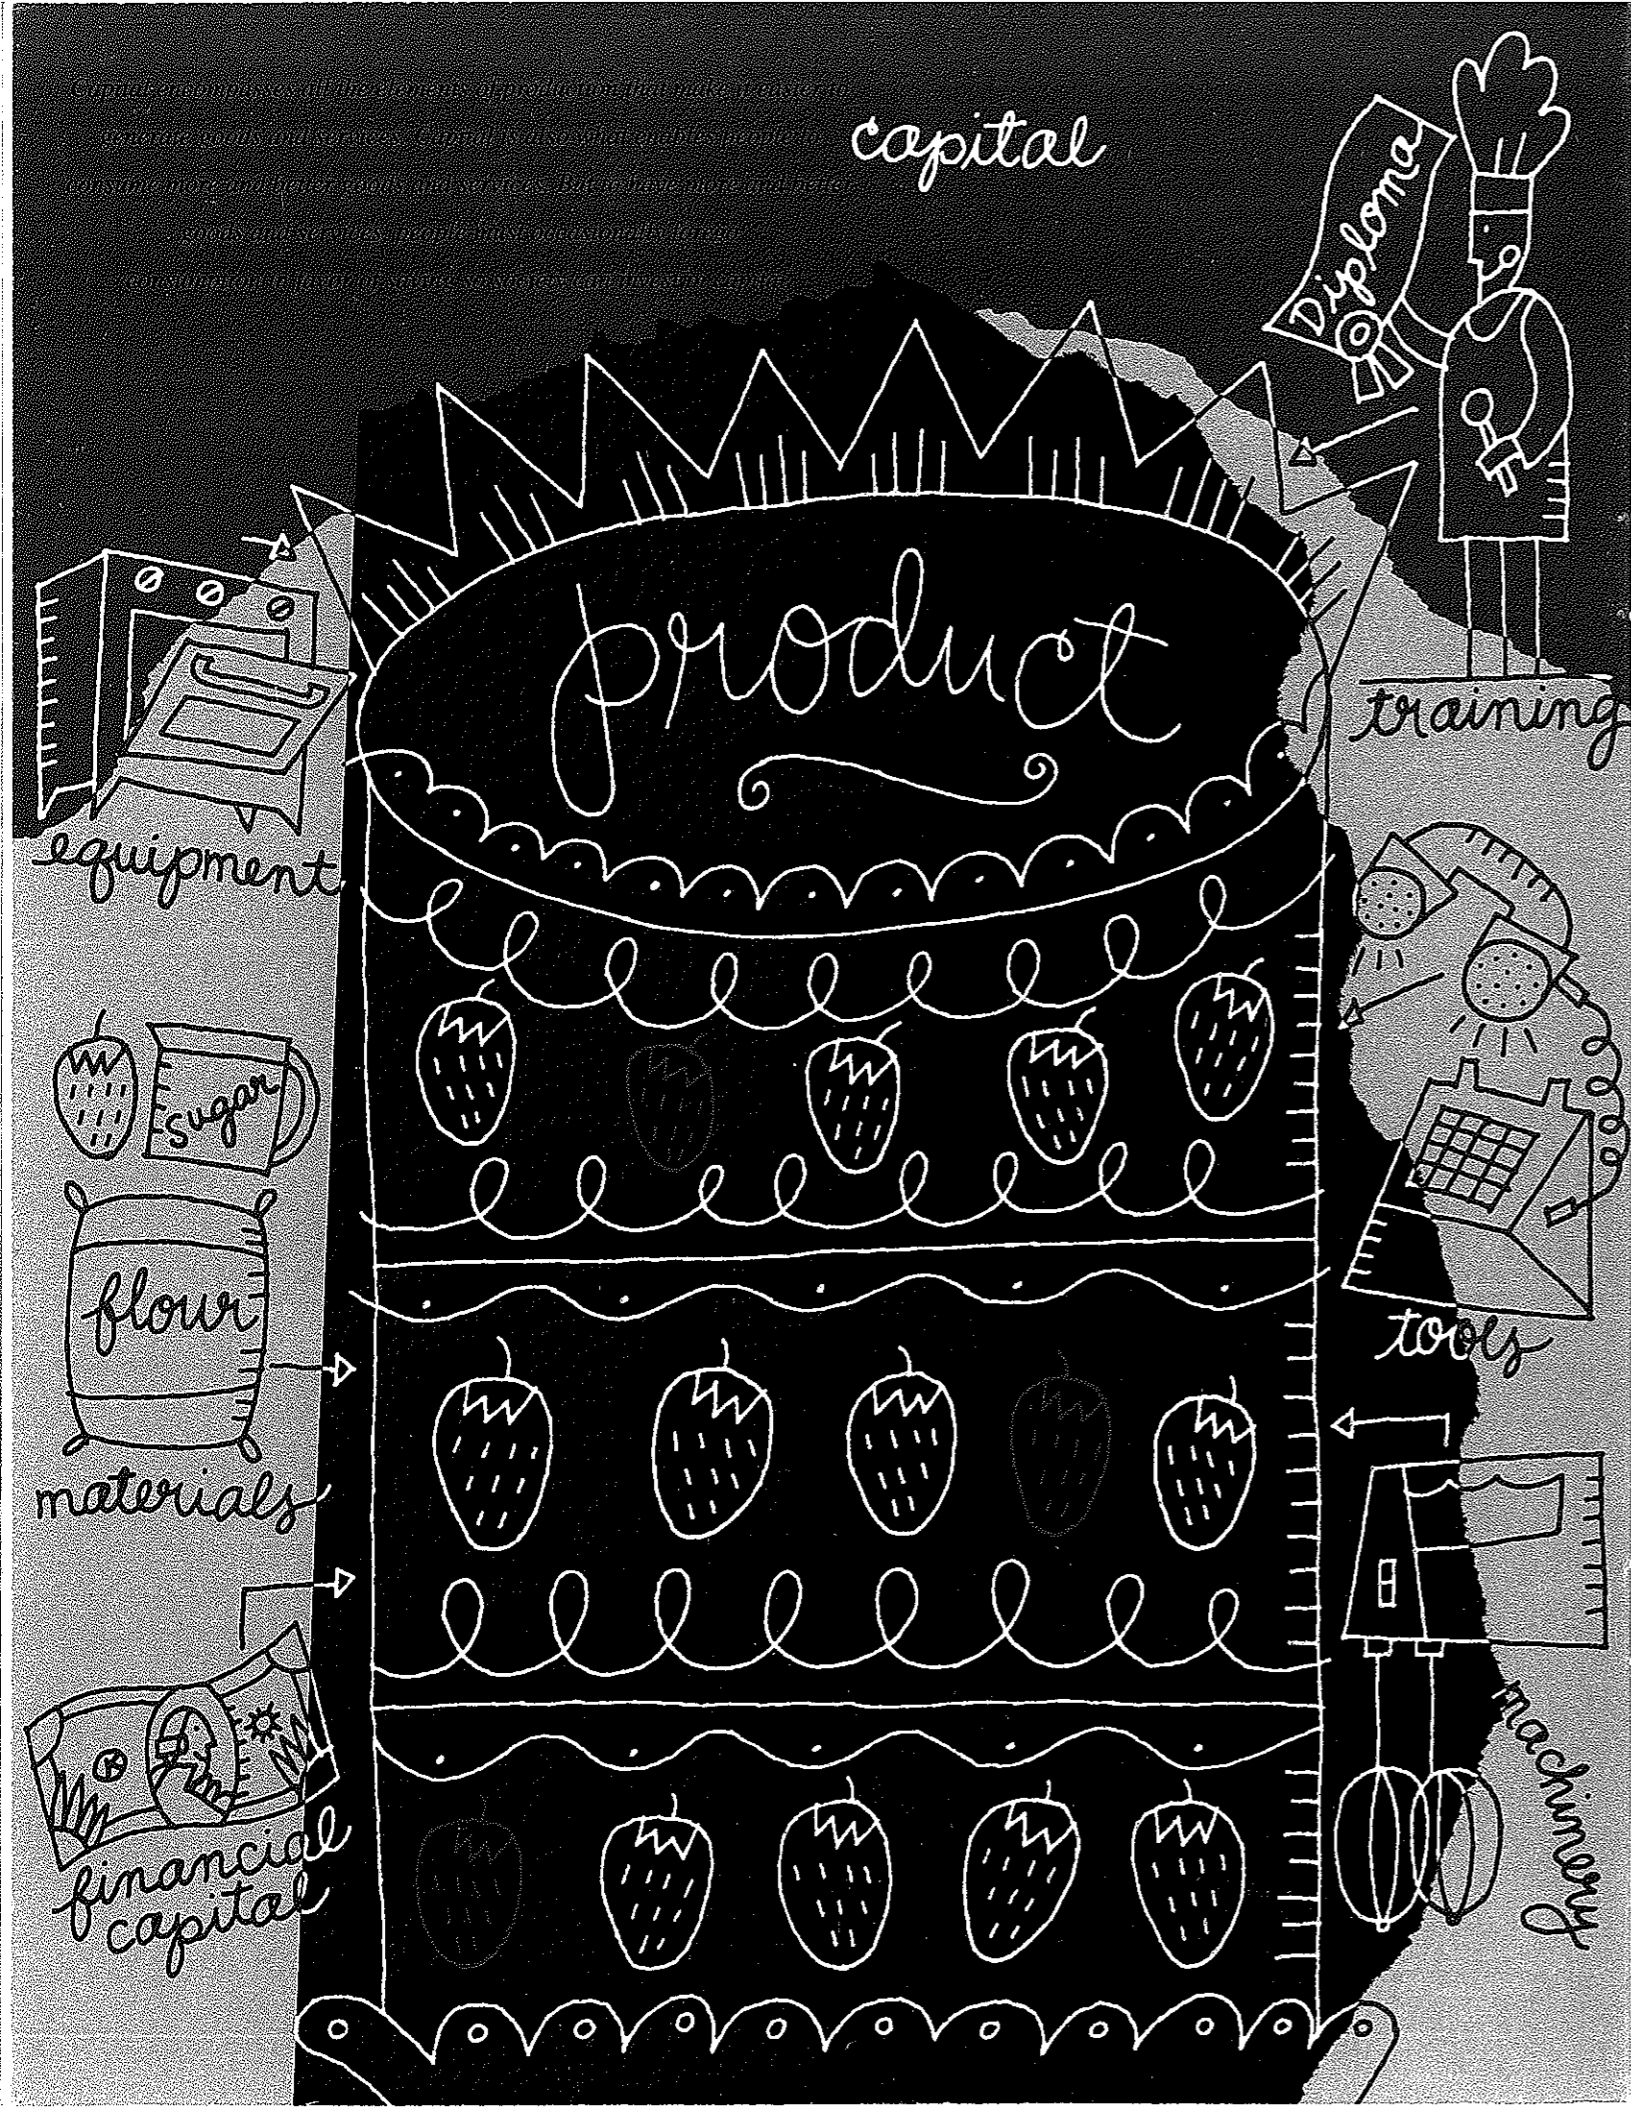 Capital encompasses all the elements of production that make it easier to
generate goods and services. Capital is also what enables people to
consume more and better goods and services. But to have more and better
goods and services, people must occasionally forego
consumption in favor of saving so society can invest in capital.
capital
Diploma
product
training
equipment
sugar
flour
tools
materials
machinery
financial
capital